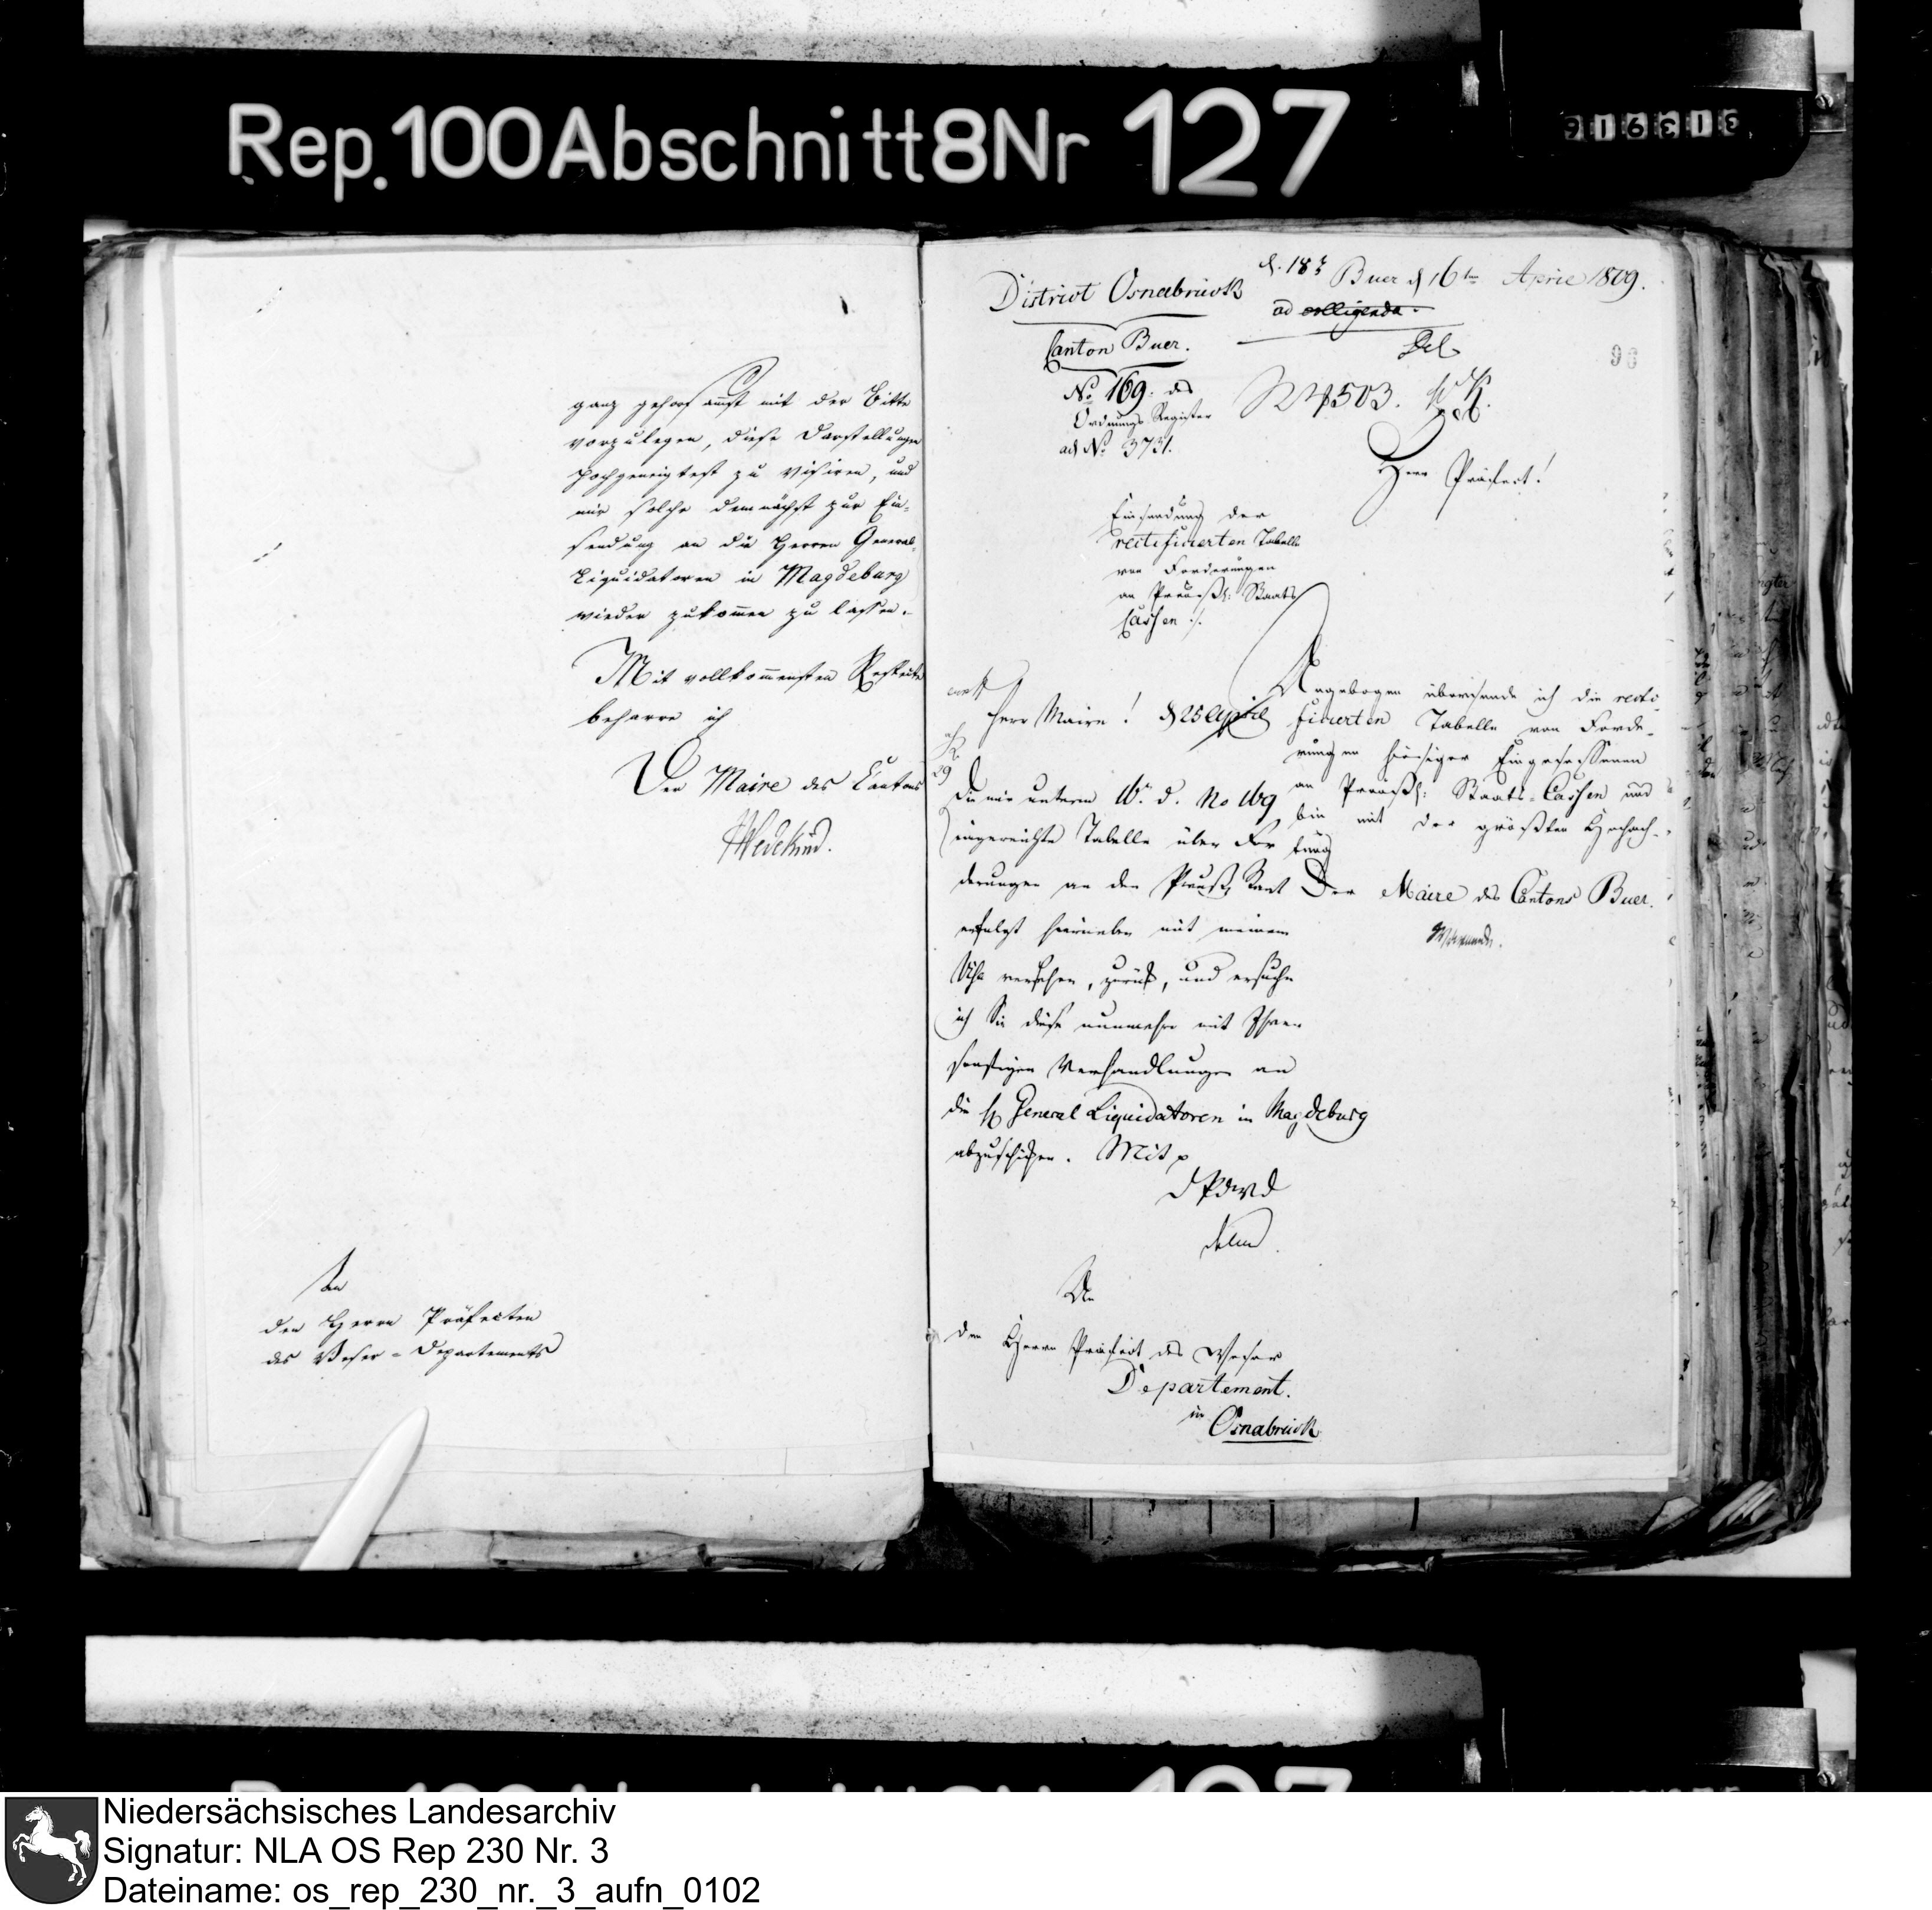 Rep. 100 Abschnitt 8 Nr 127
ganz gehorsamst mit der Bitte
vorzulegen, diese Darstellungen
hochgeneigtest zu visiren, und
mir solche demnächst zur Ein-
sendung an die Herren General-
Liquidatoren in Magdeburg
wieder zukommen zu lassen.
Mit vollkommensten Respecte
beharre ich
Der Maire des Cantons
Wedekind.
An
den Herrn Präfecten
des Weser-Departements
District Osnabrück
Canton Buer.
No 169. des
Ordnungs Register
ad No 3731.
d. 18t
ad colligenda.
Buer d 16ten April 1809.
4503.
Herr Präfect!
Einsendung der
rectificierten Tabelle
von Forderungen
an Preußs: Staats
Cassen ./.
Angebogen übersende ich die recti-
ficierten Tabelle von Forde-
rungen hiesiger Eingesessenen
an Preußs: Staats-Cassen und
bin mit der größten Hochach-
tung
Der Maire des Cantons Buer.
Herr Maire! d 25 April
Die mir unterm 16t d. No 169
eingereichte Tabelle über For
derungen an den Preuß. Staat
erfolgt hierneben mit meinem
Visa versehen, zurück, und ersuche
ich Sie diese nunmehr mit Ihren
sonstigen Verhandlungen an
die General Liquidatoren in Magdeburg
abzuschicken. Mit p
DPdWD
An
den Herrn Präfect des Weser
Departement.
in Osnabrück
Niedersächsisches Landesarchiv
Signatur: NLA OS Rep 230 Nr. 3
Dateiname: os_rep_230_nr._3_aufn_0102